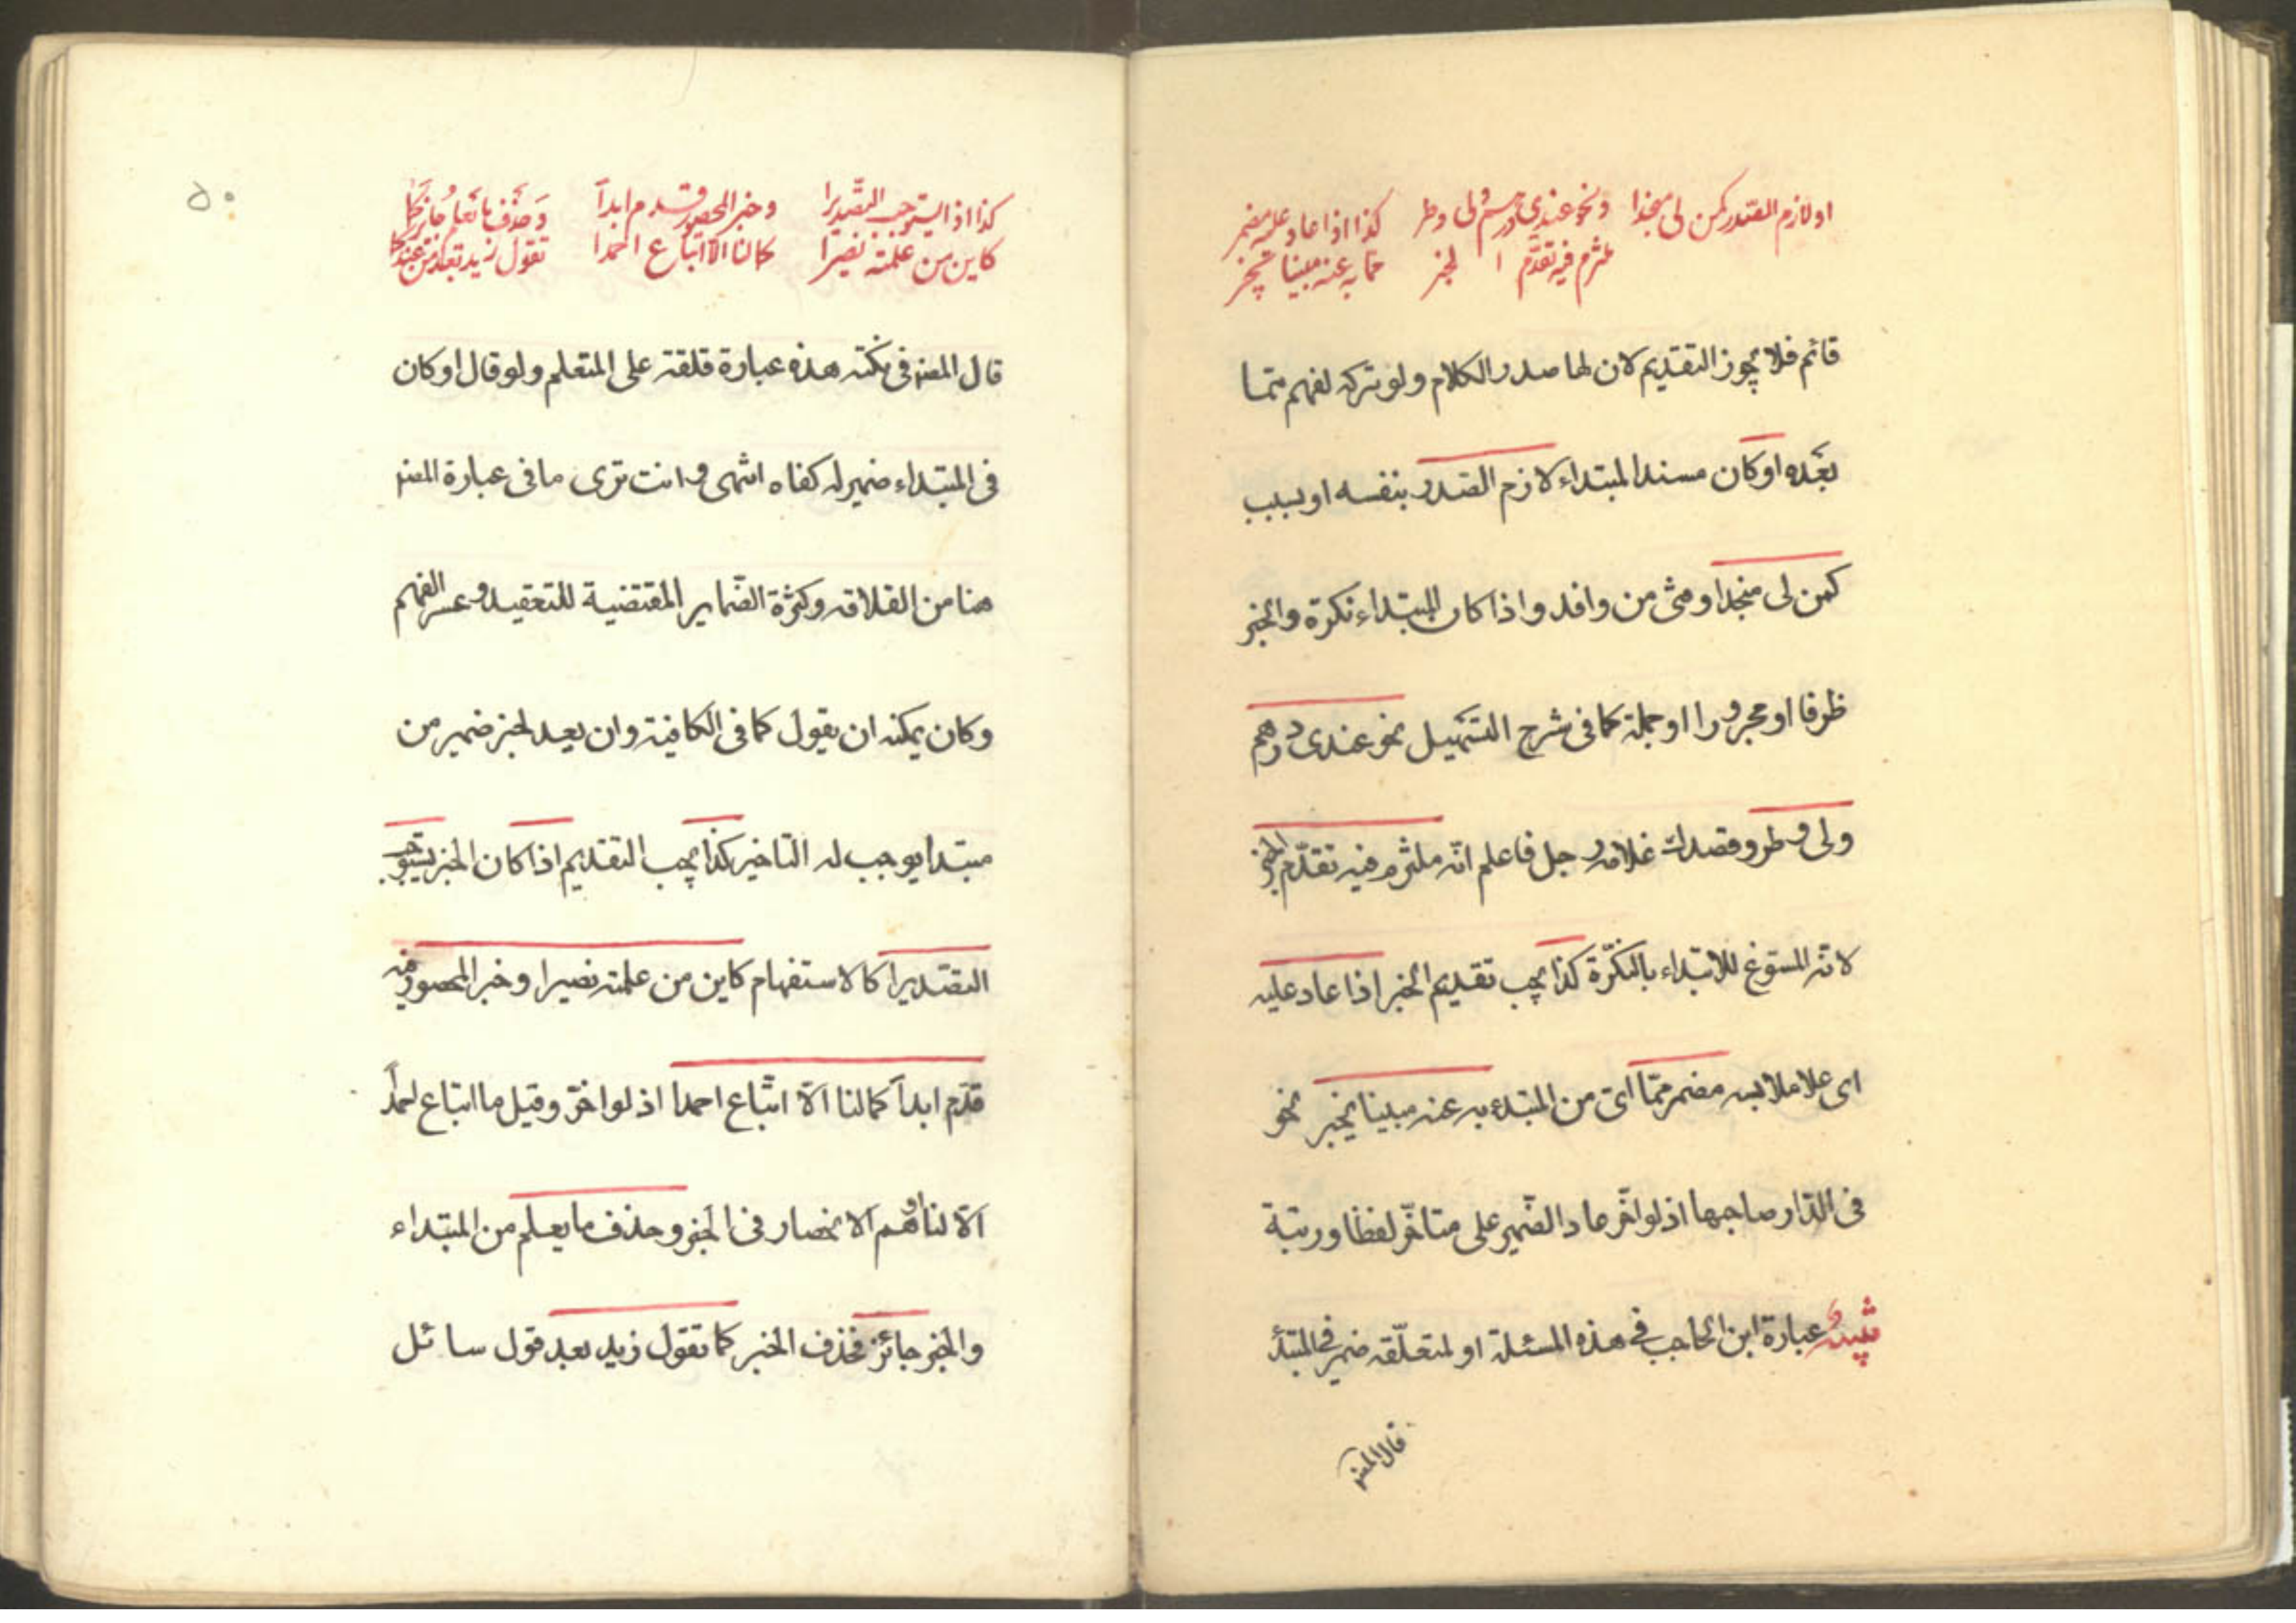 او لازم الصدر كمن لی منجدا ونحو عندی درهم ولی وطر كذا اذا عاد علیه مضمر
ملتزم فیه تقدم الخبر مما به عنه مبینا یخبر
قائم فلا یجوز التقدیم لان لها صدر الكلام ولو تركه لفهم مما
بعده او كان مسندا لمبتداء لازم الصدر بنفسه او بسبب
كمن لی منجدا ومثی من وافد واذا كان المبتداء نكرة والخبر
ظرفا او مجرورا او جملة كما فی شرح التسهیل نحو عندی درهم
ولی وطر وقصدك غلامه رجل فاعلم انّه ملتزم فیه تقدّم الخبر
لانه المسوّغ للابتداء بالنكرة كذا یجب تقدیم الخبر اذا عاد علیه
ای علی ملابسه مضمر ممّا ای من المبتدء به عنه مبینا یخبر نحو
فی الدّار صاحبها اذ لو اخّر عاد الضّمیر علی متاخّر لفظا ورتبة
تنبیه عبارة ابن الحاجب فی هذه المسئلة او لمتعلّقه ضمیر فی المبتدأ
قال المصنف
۵۰
كذا اذا یستوجب التّصدیرا وخبر المحصور قدم ابدآ وَحذف ما یعلم جائز كما
كاین من علمته نصیرا كمالنا الّا اتباع احمدا تقول زید بعد من عندكما
قال المصنف فی نكته هذه عبارة قلقة علی المتعلم ولو قال او كان
فی المبتداء ضمیر له كفاه انتهی وانت تری ما فی عبارة المصنف
هنا من القلاقه وكثرة الضّمایر المقتضیة للتعقید وعسر الفهم
وكان یمكنه ان یقول كما فی الكافیة وان یعد لخبر ضمیر من
مبتدا یوجب له التاخیر كذا یجب التقدیم اذا كان الخبر یستوجب
التصدیرا كالاستفهام كاین من علمته نصیرا وخبر المحصور فیه
قدّم ابدآ كمالنا الّا اتّباع احمدا اذ لو اخّر وقیل ما اتباع احمد
الّا لنا اوهم الانحصار فی الخبر وحذف ما یعلم من المبتداء
والخبر جائز فحذف الخبر كما تقول زید بعد قول سائل